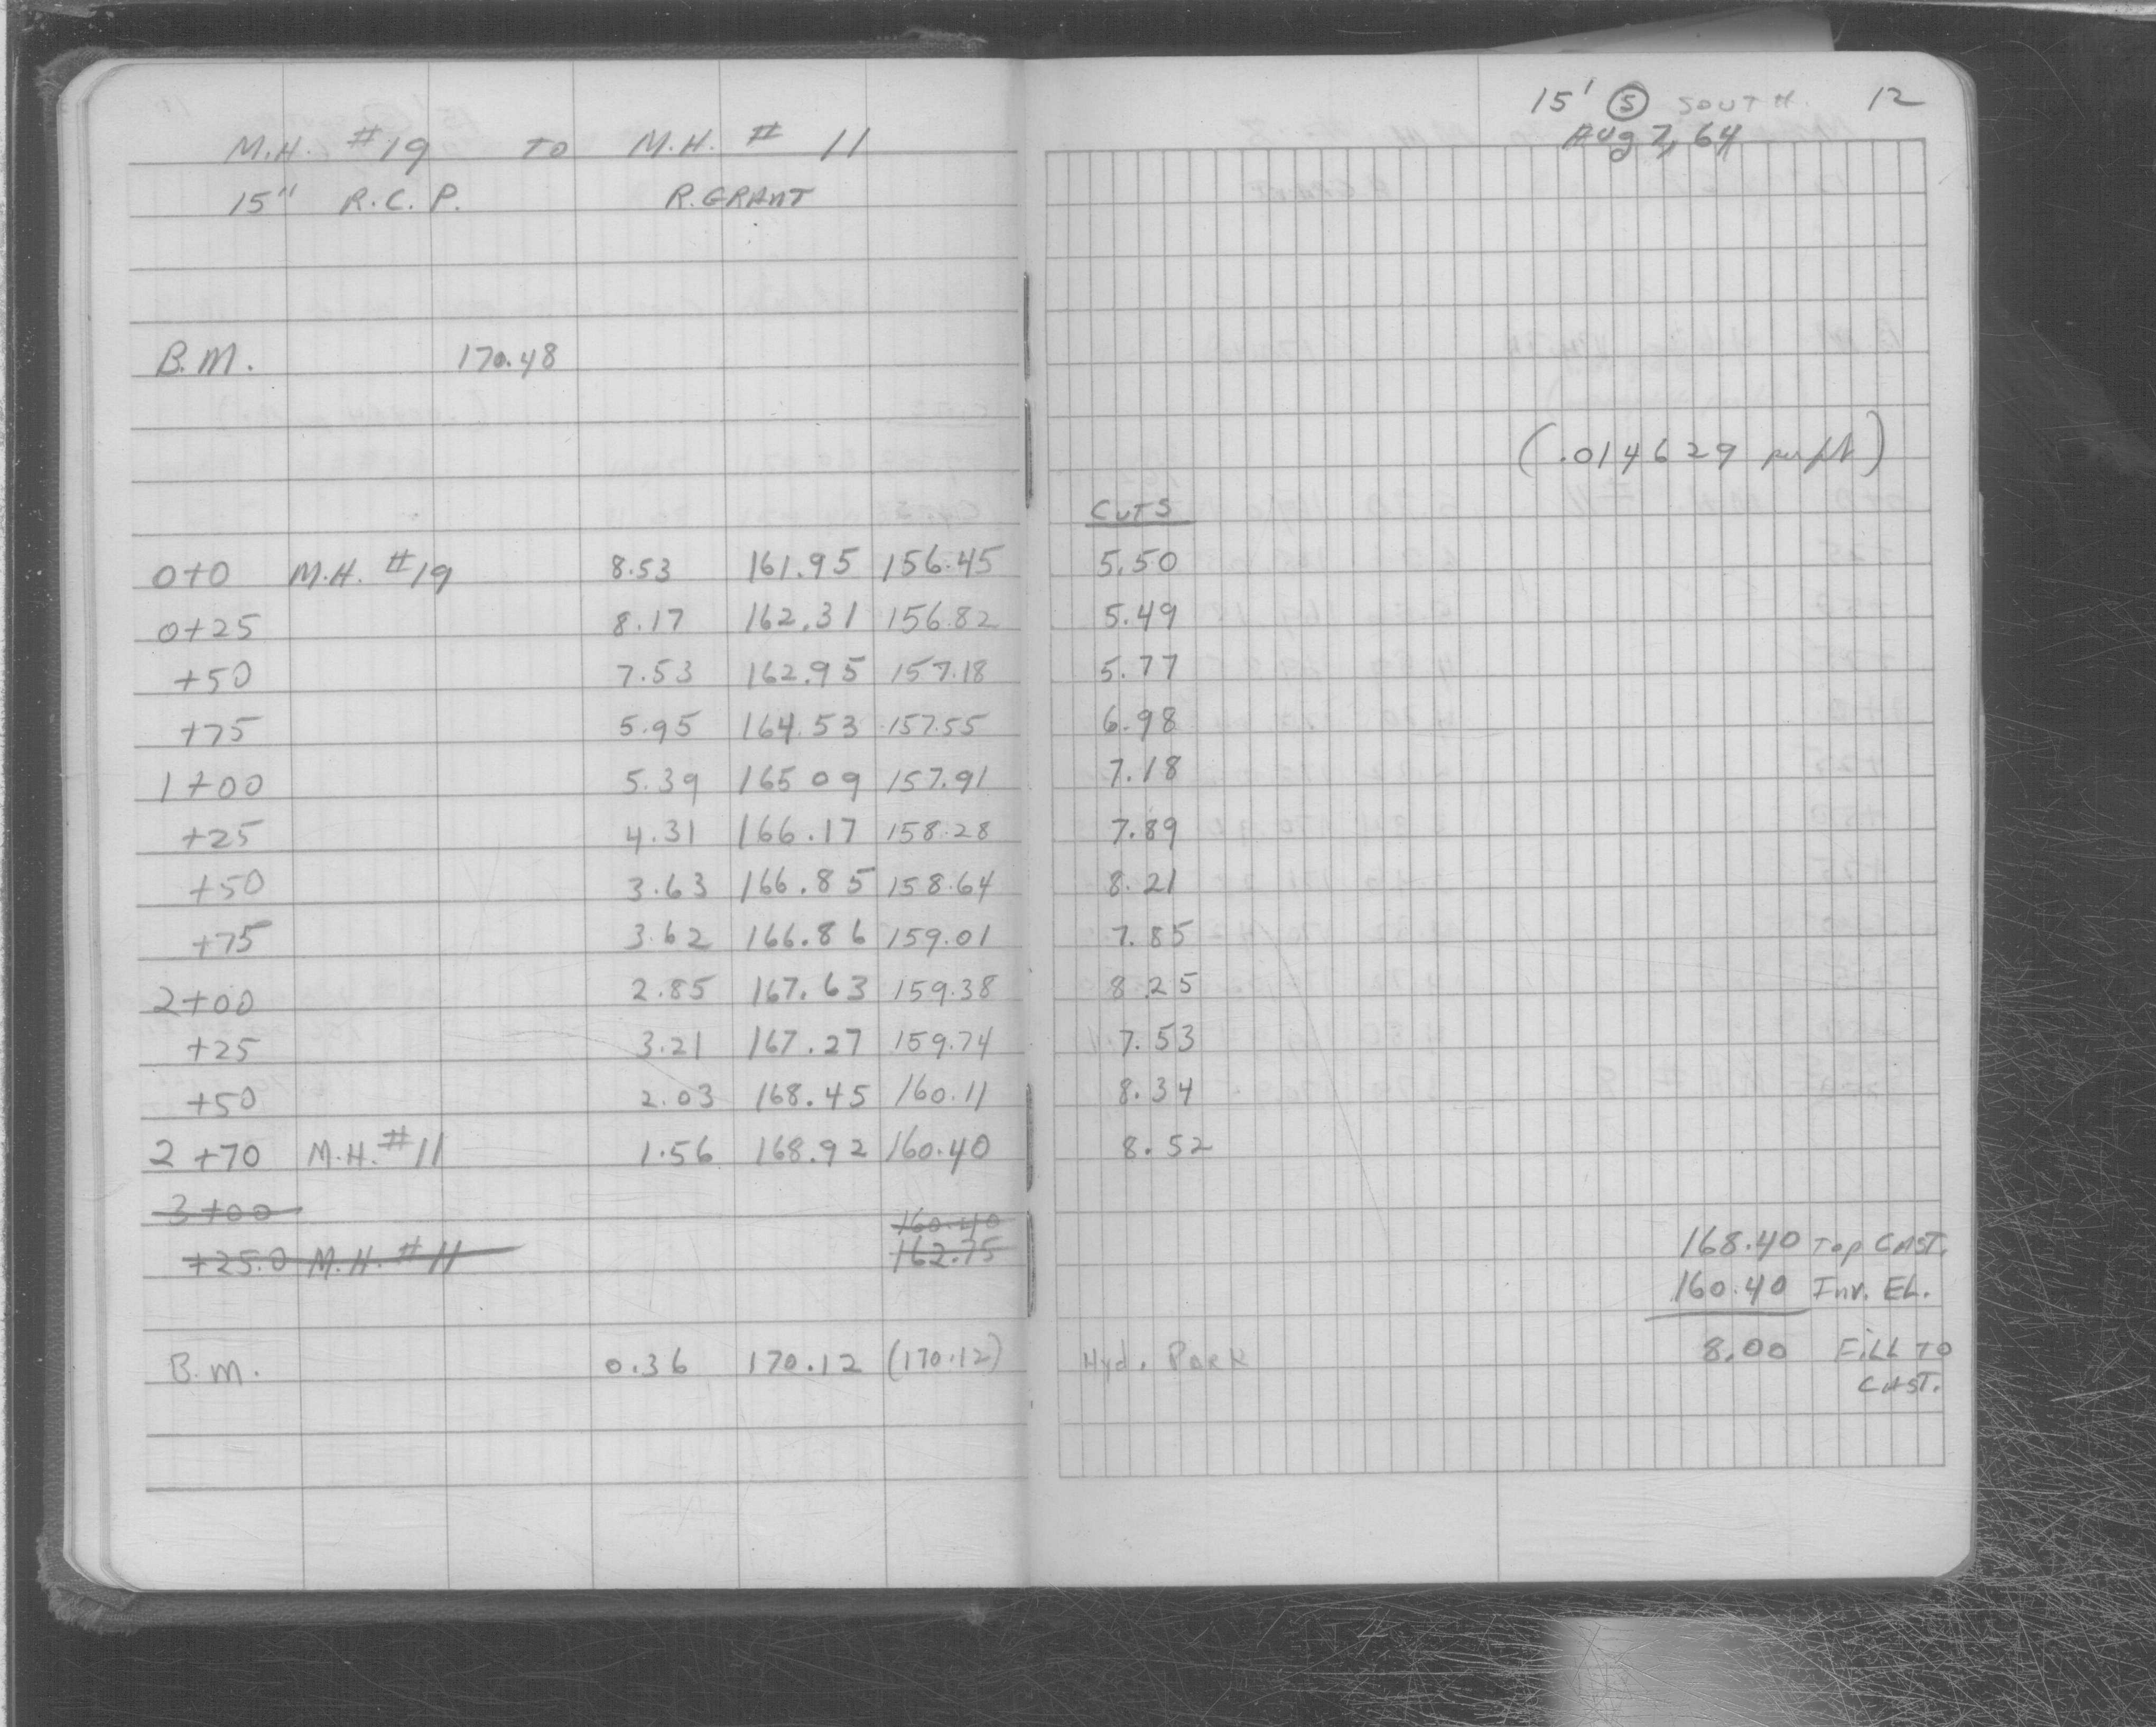 M.H. #19 TO M.H. # 11
15" R.C.P. R.GRANT
B.M. 170.48
0+0 M.H. #19 8.53 161.95 156.45
0+25 8.17 162.31 156.82
+50 7.53 162.95 157.18
+75 5.95 164.53 157.55
1+00 5.39 165 09 157.91
+25 4.31 166.17 158.28
+50 3.63 166.85 158.64
+75 3.62 166.86 159.01
2+00 2.85 167.63 159.38
+25 3.21 167.27 159.74
+50 2.03 168.45 160.11
2+70 M.H. #11 1.56 168.92 160.40
3+00
160.40
+25.0 M.H. #11 162.75
B.M. 0.36 170.12 (170.12)
15' S SOUTH. 12
Aug 7, 64
(.014629 per ft)
CUTS
5.50
5.49
5.77
6.98
7.18
7.89
8.21
7.85
8.25
7.53
8.34
8.52
168.40 Top CAST.
160.40 Inv. EL.
Hyd. 8.00 FILL TO
CAST.